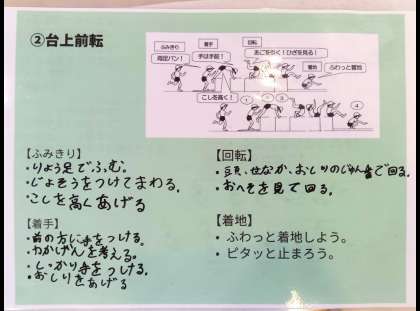 ②台上前転
ふみきり
着手
回転
両足でバン!
手は手前!
あごを引く!ひざを見る!
着地
ふわっと着地
こしを高く!
①
②
③
④
【ふみきり】
・りょう足でふむ。
・じょそうをつけてまわる。
・こしを高くあげる
【着手】
・前の方に手をつける。
・力かげんを考える。
・しっかり手をつける。
・おしりをあげる
【回転】
・頭、せなか、おしりのじゅん番で回る。
・おへそを見て回る。
【着地】
・ふわっと着地しよう。
・ピタッと止まろう。